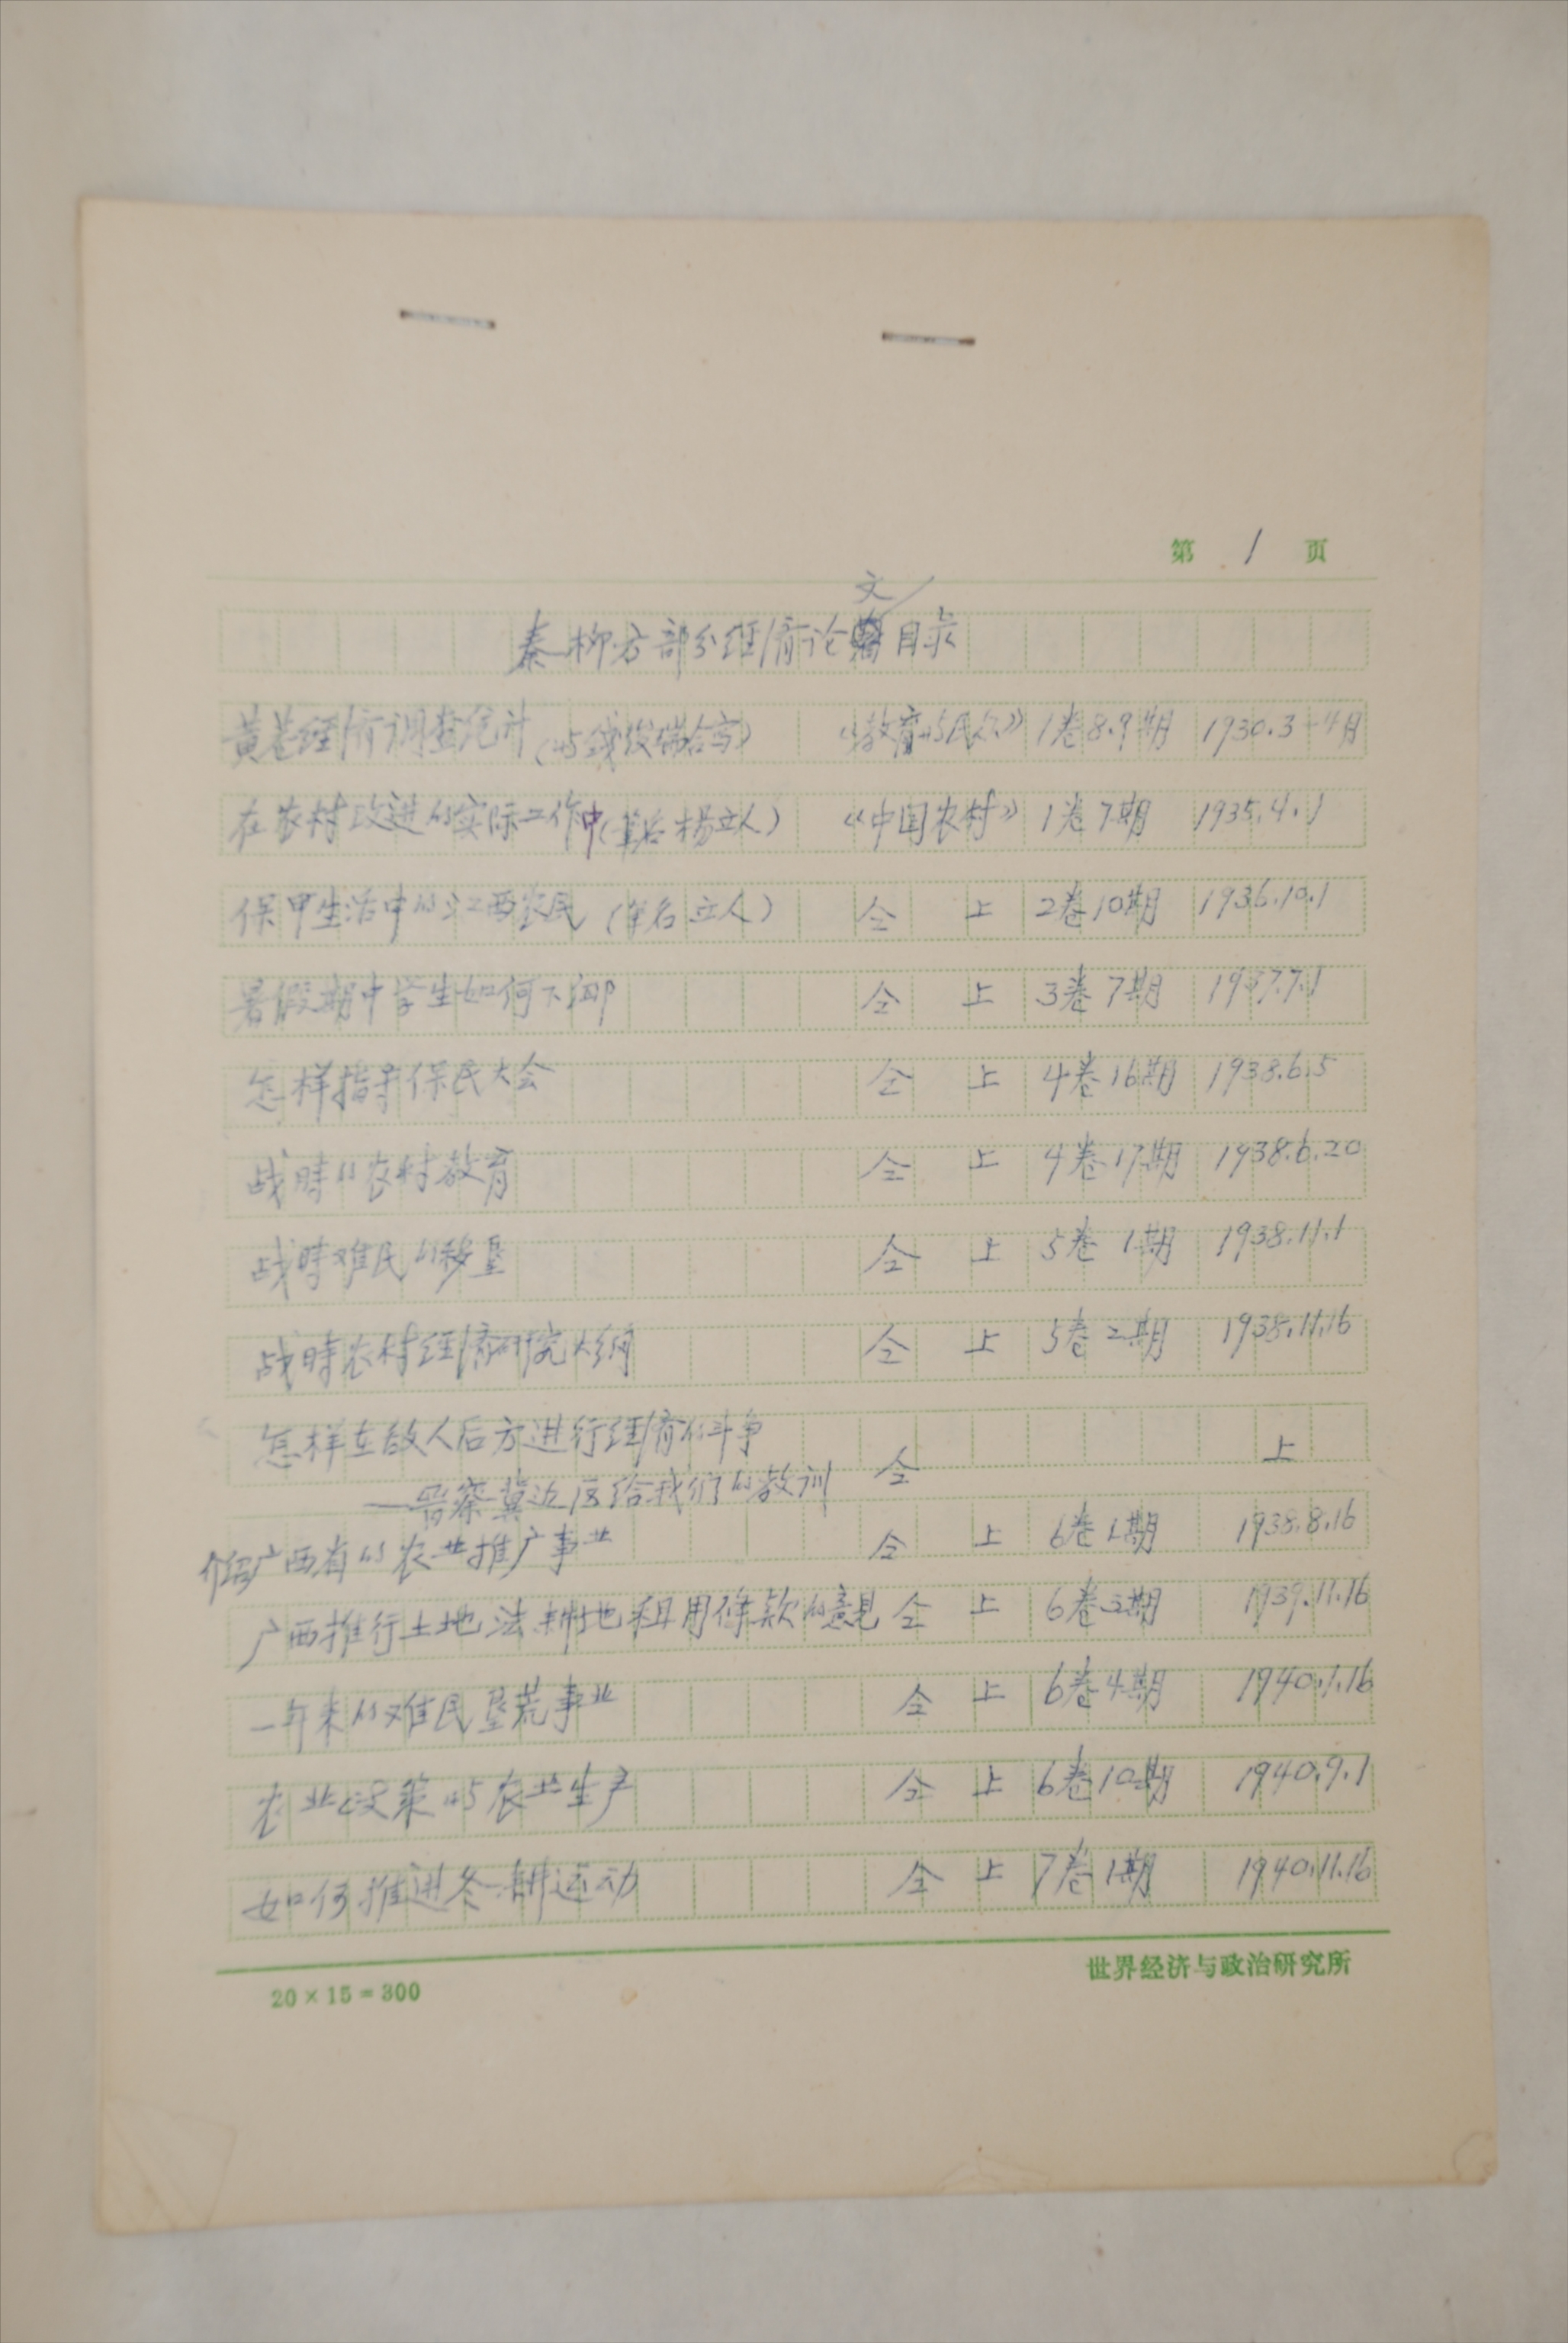 第 1 页
秦柳方部分经济论文目录
黄巷经济调查统计(与钱俊瑞合写) 《教育与民众》 1卷8.9期 1930.3-4月
在农村改进的实际工作中(笔名杨立人) 《中国农村》 1卷7期 1935.4.1
保甲生活中的江西农民 (笔名立人) 仝 上 2卷10期 1936.10.1
暑假期中学生如何下乡 仝 上 3卷7期 1937.7.1
怎样指导保民大会 仝 上 4卷16期 1938.6.5
战時的农村教育 仝 上 4卷17期 1938.6.20
战時难民的移垦 仝 上 5卷1期 1938.11.1
战時农村经济研究大纲 仝 上 5卷2期 1938.11.16
怎样在敌人后方进行经济的斗争 仝 上
——晋察冀边区给我们的教训
介绍广西省的农业推广事业 仝 上 6卷1期 1938.8.16
广西推行土地法耕地租用條款的意見 仝 上 6卷3期 1939.11.16
一年来的难民垦荒事业 仝 上 6卷4期 1940.1.16
农业政策与农业生产 仝 上 6卷10期 1940.9.1
如何推进冬耕运动 仝 上 7卷1期 1940.11.16
20×15=300 世界经济与政治研究所